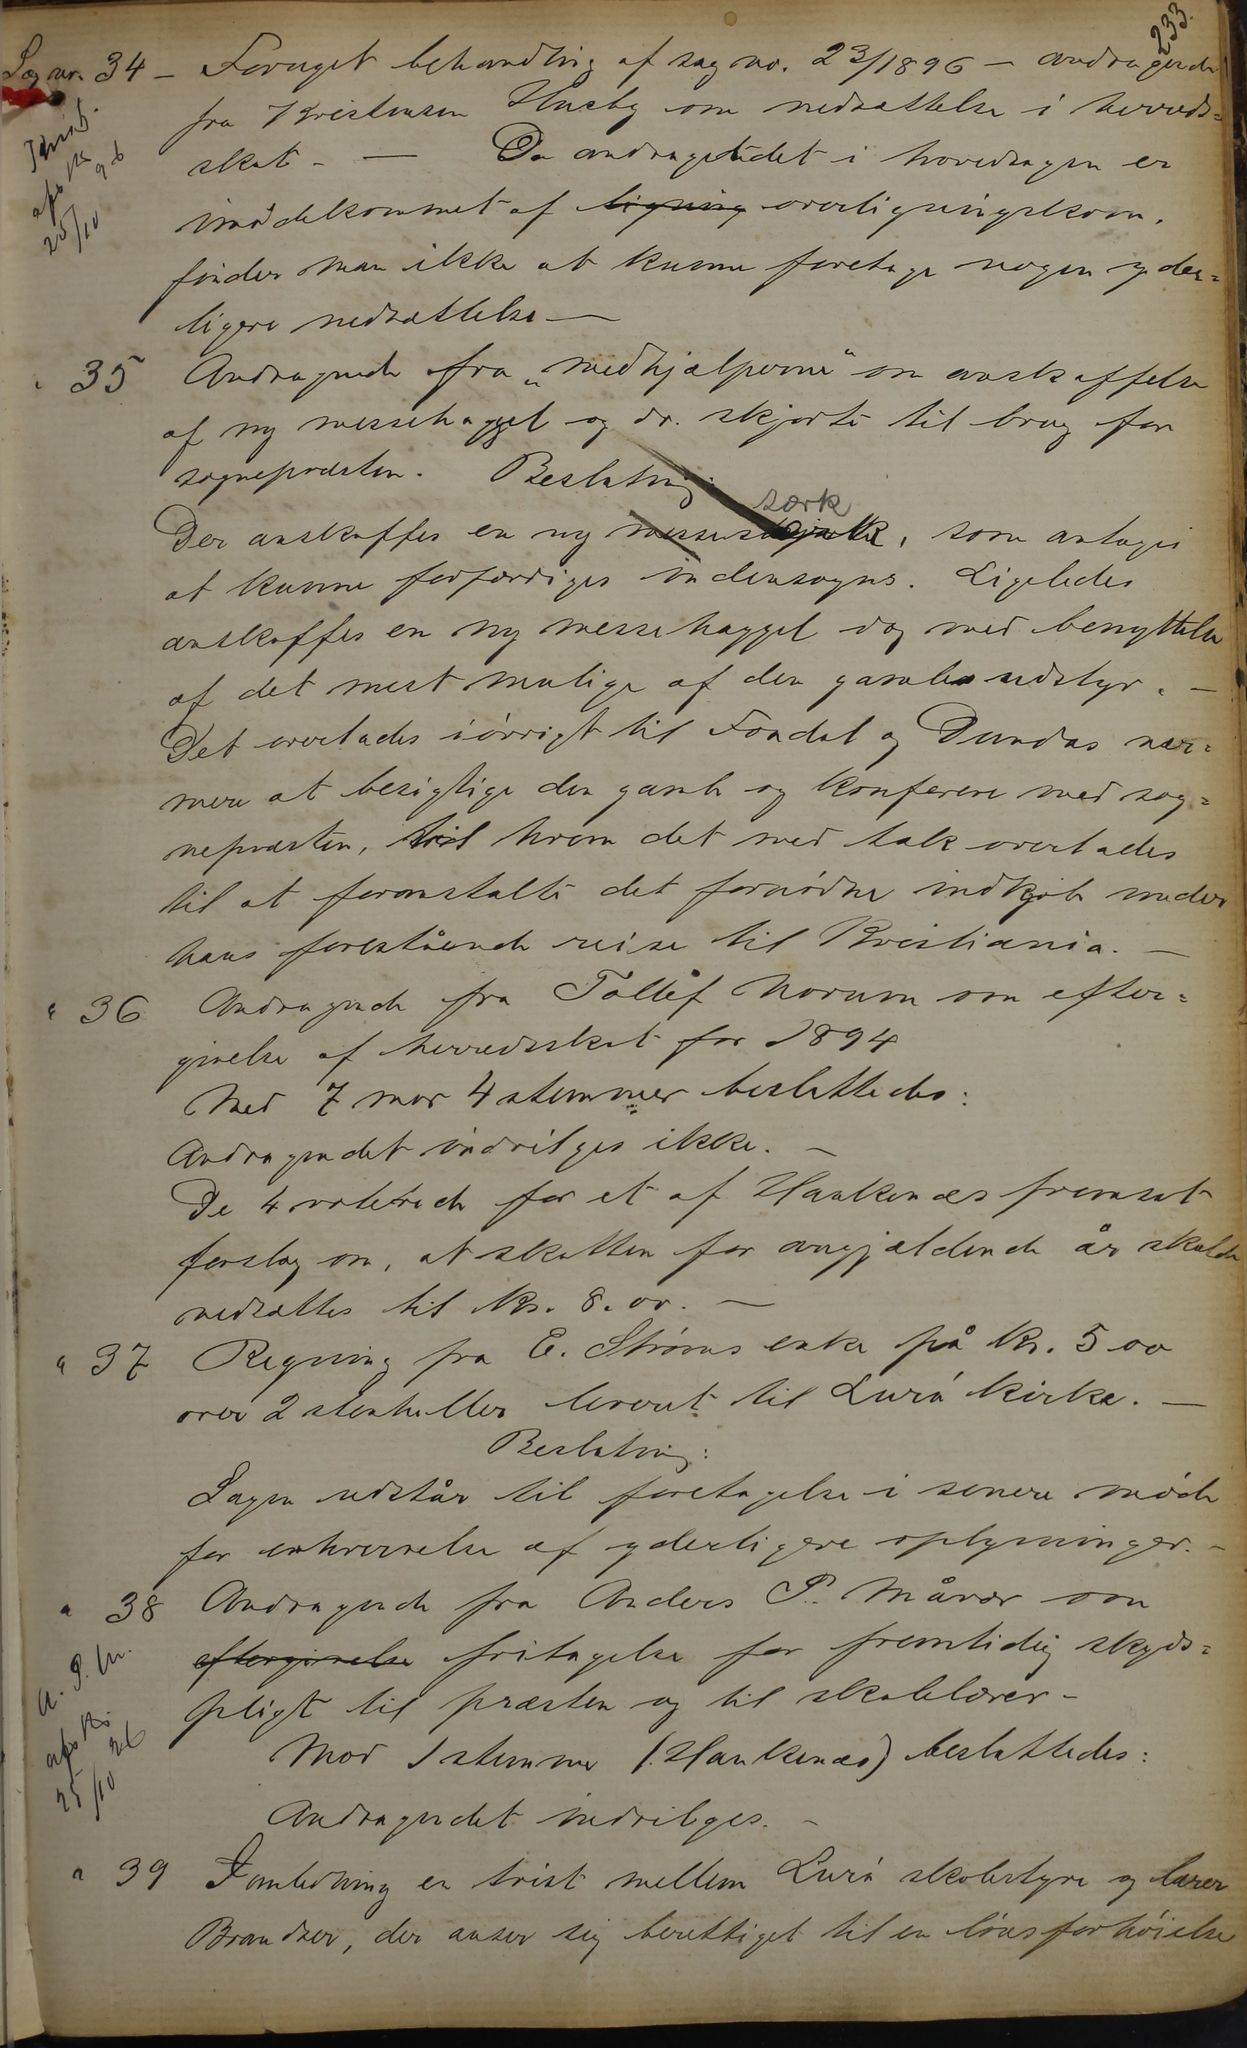 233.
Sag nr. 34 - Foruget behandling af sag no. 23/1896 - andragende
fra Kristensen Husby om nedsættelse i herreds=
skat. - Da andragendet i hovedsagen er
imødekommet af ligning overligningskom.
finder man ikke at kunne foretage nogen yder=
ligere nedsættelse —
" 35 Andragende fra "medhjælperne" om anskaffelse
af ny messehagel og do. skjorte til brug for
sognepræsten. Beslutning:
særk
Der anskaffes en ny messeskjorte, som antages
at kunne forfærdiges indensogns. Ligeledes
anskaffes en ny messehaggel dog med benyttelse
af det mest mulige af den gamles udstyr. —
Det overlades iøvrigt til Fondal og Dundas nær=
mere at besigtige den gamle og konferere med sog=
nepræsten, til hvem det med tak overlades
til at foranstalte det fornødne indkjøb under
hans forestående reise til Kristiania. —
" 36 Andragende fra Tollef Norum om efter=
givelse af herredsskat for 1894
Med 7 mod 4 stemmer besluttedes:
Andragendet indvilges ikke. —
De 4 voterede for et af Hankenæs fremsat
forslag om, at skatten for angjældende år skulde
nedsættes til kr. 8.00. —
" 37 Regning fra E. Strøms enke på kr. 5 00
over 2 stenheller leveret til Lurø kirke. —
Beslutning:
Sagen udstår til foretagelse i senere møde
for erhvervelse af yderligere oplysninger. -
" 38 Andragende fra Anders P. Måvær om
eftergivelse fritagelse for fremtidig skyds=
pligt til præsten og til skolelærer -
A. P. M.
afskr.
25/10 96
Mod 1 stemme (Hankenæs) besluttedes:
Andragendet indvilges. -
" 39 I anledning en tvist mellem Lurø skolestyre og lærer
Brandser, der anser sig berettiget til en lønsforhøielse